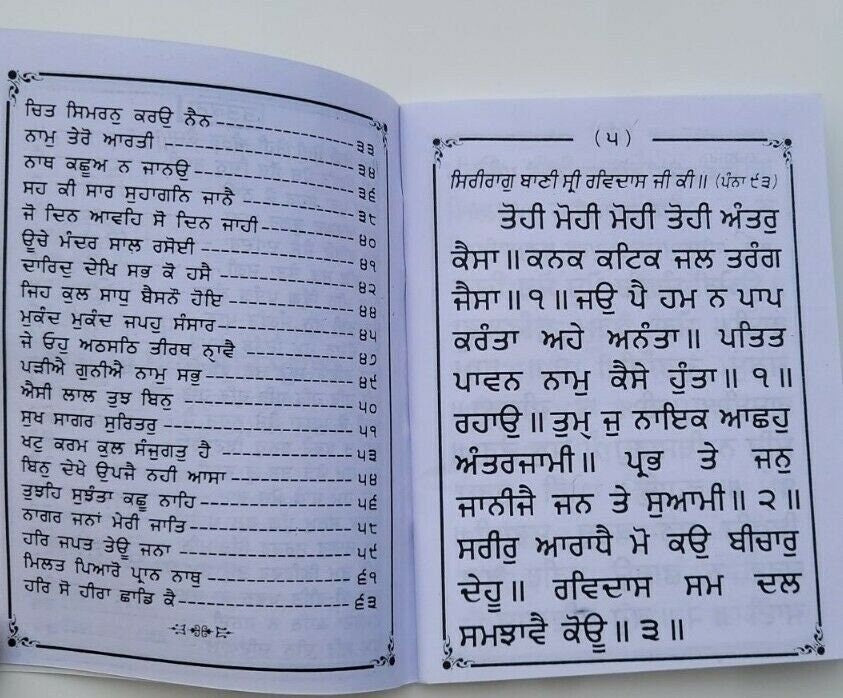 ਚਿਤ ਸਿਮਰਨੁ ਕਰਉ ਨੈਨ ੩੩
ਨਾਮੁ ਤੇਰੋ ਆਰਤੀ ੩੪
ਨਾਥ ਕਛੂਅ ਨ ਜਾਨਉ ੩੬
ਸਹ ਕੀ ਸਾਰ ਸੁਹਾਗਨਿ ਜਾਨੈ ੩੮
ਜੋ ਦਿਨ ਆਵਹਿ ਸੋ ਦਿਨ ਜਾਹੀ ੪੦
ਊਚੇ ਮੰਦਰ ਸਾਲ ਰਸੋਈ ੪੧
ਦਾਰਿਦੁ ਦੇਖਿ ਸਭ ਕੋ ਹਸੈ ੪੨
ਜਿਹ ਕੁਲ ਸਾਧੁ ਬੈਸਨੌ ਹੋਇ ੪੪
ਮੁਕੰਦ ਮੁਕੰਦ ਜਪਹੁ ਸੰਸਾਰ ੪੫
ਜੇ ਓਹੁ ਅਠਸਠਿ ਤੀਰਥ ਨ੍ਹਾਵੈ ੪੭
ਪੜੀਐ ਗੁਨੀਐ ਨਾਮੁ ਸਭੁ ੪੯
ਐਸੀ ਲਾਲ ਤੁਝ ਬਿਨੁ ੫੦
ਸੁਖ ਸਾਗਰ ਸੁਰਿਤਰੁ ੫੧
ਖਟੁ ਕਰਮ ਕੁਲ ਸੰਜੁਗਤੁ ਹੈ ੫੩
ਬਿਨੁ ਦੇਖੇ ਉਪਜੈ ਨਹੀ ਆਸਾ ੫੪
ਤੁਝਹਿ ਸੁਝੰਤਾ ਕਛੂ ਨਾਹਿ ੫੬
ਨਾਗਰ ਜਨਾਂ ਮੇਰੀ ਜਾਤਿ ੫੮
ਹਰਿ ਜਪਤ ਤੇਊ ਜਨਾ ੫੯
ਮਿਲਤ ਪਿਆਰੋ ਪ੍ਰਾਨ ਨਾਥੁ ੬੧
ਹਰਿ ਸੋ ਹੀਰਾ ਛਾਡਿ ਕੈ ੬੩
(੫)
ਸਿਰੀਰਾਗੁ ਬਾਣੀ ਸ੍ਰੀ ਰਵਿਦਾਸ ਜੀ ਕੀ॥ (ਪੰਨਾ ੯੩)
ਤੋਹੀ ਮੋਹੀ ਮੋਹੀ ਤੋਹੀ ਅੰਤਰੁ
ਕੈਸਾ॥ ਕਨਕ ਕਟਿਕ ਜਲ ਤਰੰਗ
ਜੈਸਾ॥੧॥ ਜਉ ਪੈ ਹਮ ਨ ਪਾਪ
ਕਰੰਤਾ ਅਹੇ ਅਨੰਤਾ॥ ਪਤਿਤ
ਪਾਵਨ ਨਾਮੁ ਕੈਸੇ ਹੁੰਤਾ॥੧॥
ਰਹਾਉ॥ ਤੁਮ੍ ਜੁ ਨਾਇਕ ਆਛਹੁ
ਅੰਤਰਜਾਮੀ॥ ਪ੍ਰਭ ਤੇ ਜਨੁ
ਜਾਨੀਜੈ ਜਨ ਤੇ ਸੁਆਮੀ॥੨॥
ਸਰੀਰੁ ਆਰਾਧੈ ਮੋ ਕਉ ਬੀਚਾਰੁ
ਦੇਹੂ॥ ਰਵਿਦਾਸ ਸਮ ਦਲ
ਸਮਝਾਵੈ ਕੋਊ॥੩॥